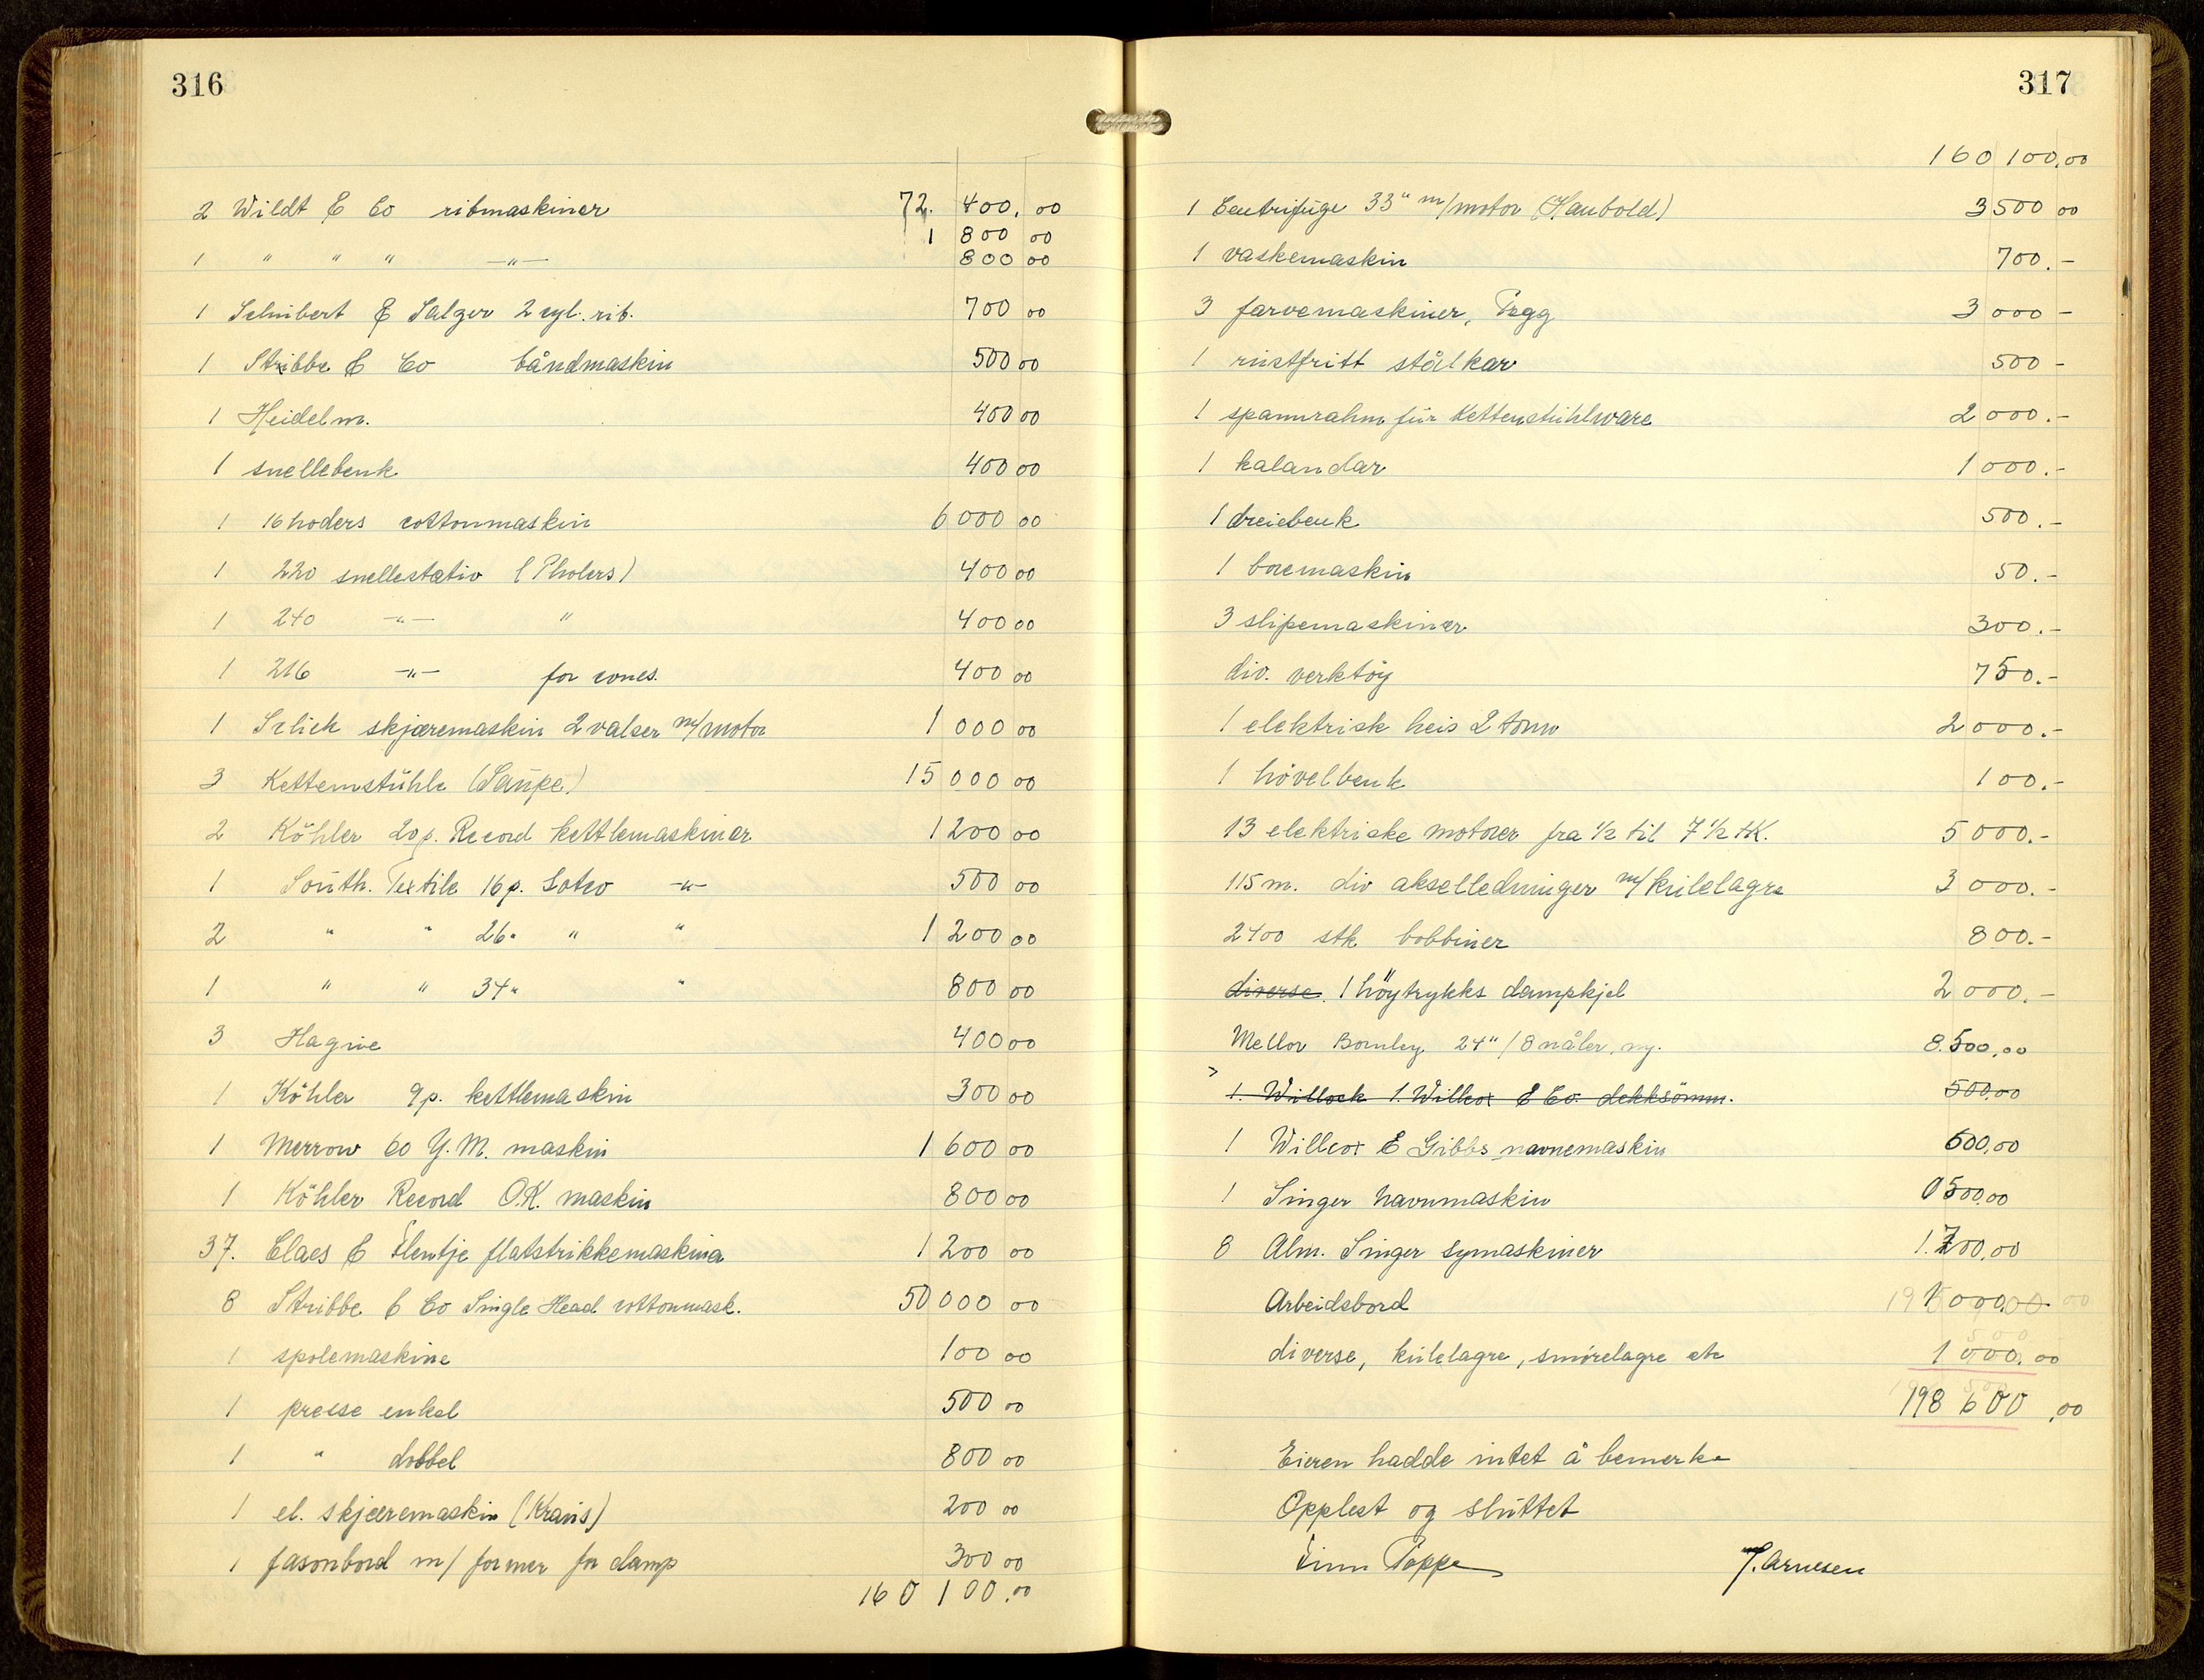 316
72. 400,00
2 Wildt & Co ribmaskiner 1 800 00
1 " " " —"— 800 00
1 Schubert & Salzer 2 cyl. rib. 700 00
1 Stribbe & Co båndmaskin 500 00
1 Heidelm. 400 00
1 snellebenk 400 00
1 16 hoders cottonmaskin 6 000 00
1 220 snellestativ (Pholers) 400 00
1 240 —"— " 400 00
1 216 —"— for cones. 400 00
1 skjæremaskin 2 valser m/motor 1 000 00
3 Kettenstühle (Saupe) 15 000 00
2 Köhler 20 p. Record kettlemaskiner 1 200 00
1 South. Textile 16 p. Sotco —"— 500 00
2 " " 26" " " 1 200 00
1 " " 34" " 800 00
3 Hague 400 00
1 Köhler 9 p. kettlemaskin 300 00
1 Merrow Co Y.M. maskin 1 600 00
1 Köhler Record O.K. maskin 800 00
37. Claes & Flentje flatstrikkemaskiner 1 200 00
8 Stribbe & Co Single Head cottonmask. 50 000 00
1 spolemaskine 100 00
1 presse enkel 500 00
1 " dobbel 800 00
1 el. skjæremaskin (Kraus) 200 00
1 fasonbord m/ former for damp 300 00
160 100.00
317
160 100,00
1 Centrifuge 33" m/motor (Haubold) 3 500 00
1 vaskemaskin 700.-
3 farvemaskiner, Pegg 3 000 -
1 rustfritt stålkar 500 -
1 spannrahm für Kettenstühlware 2 000.-
1 kalandar 1 000.-
1 dreiebenk 500.-
1 boremaskin 50.-
3 slipemaskiner 300.-
div. verktöy 750.-
1 elektrisk heis 2 tonn 2 000.-
1 hövelbenk 100.-
13 elektriske motorer fra 1/2 til 7 1/2 HK. 5 000.-
115 m. div akselledninger m/kulelagre 3 000.-
2400 stk. bobbiner 800.-
diverse. 1 höytrykks dampkjel 2 000.-
Mellor Bromley 24"/8 nåler, ny. 8.500,00
1. Willock 1. Willcox & Co. dekksömm. 500,00
1 Willcox & Gibbs navnemaskin 600,00
1 Singer navnmaskin 500,00
8 Alm. Singer symaskiner 1.200,00
Arbeidsbord 1 000,00
diverse, kulelagre, smörelagre etc 1 000.00
198 600,00
Eieren hadde intet å bemerke
Opplest og sluttet
Finn Poppe J. Arnesen